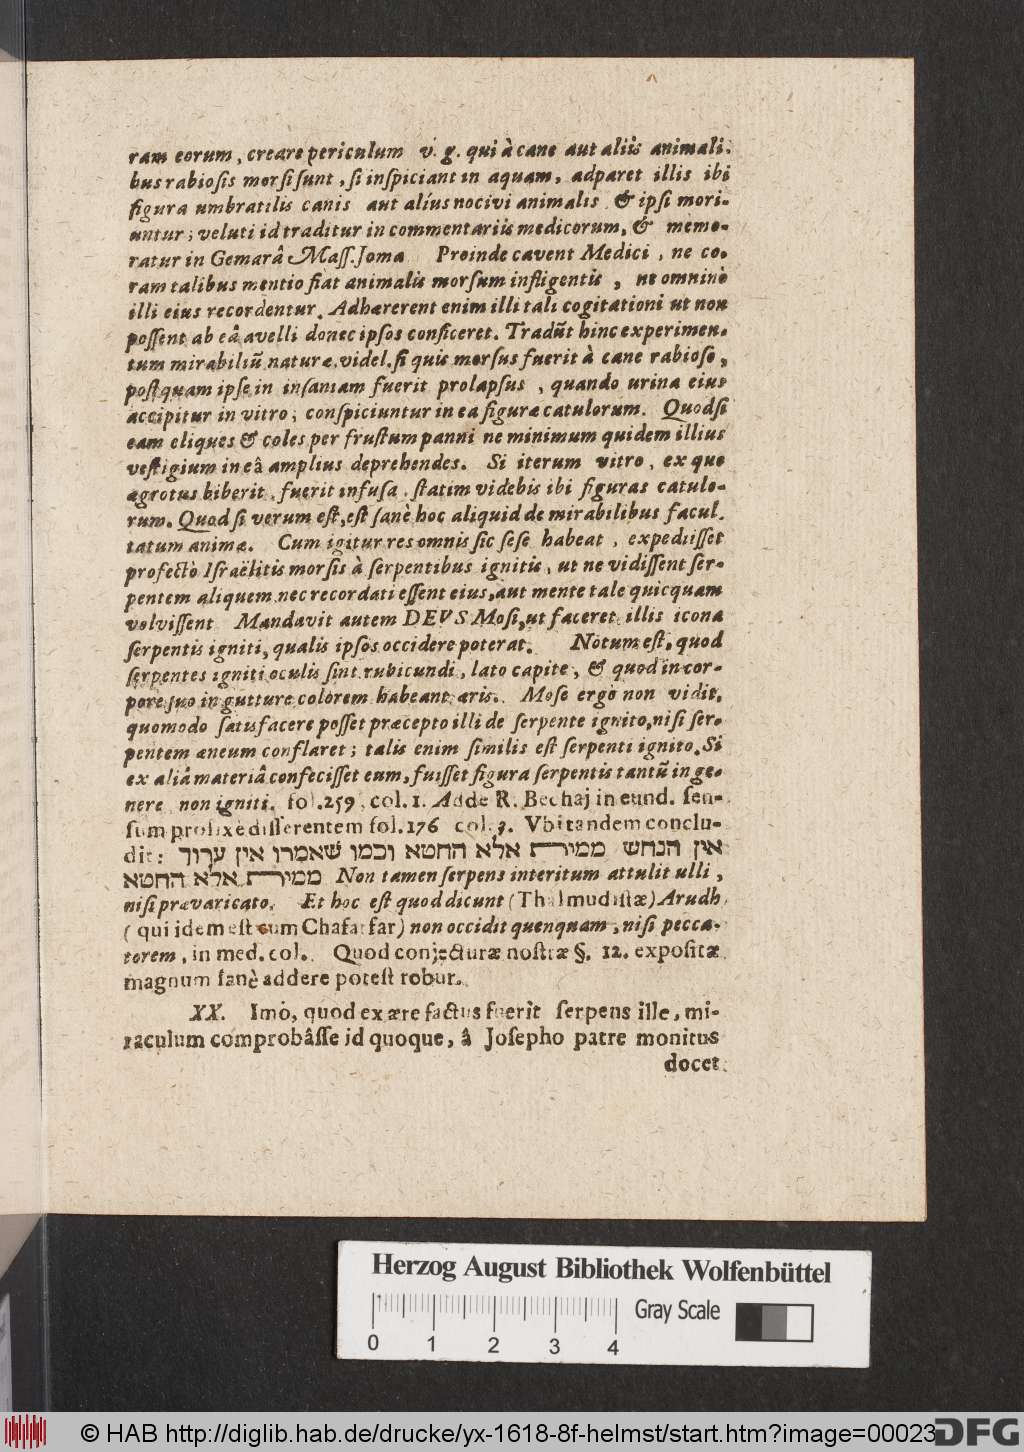 ram eorum, creare periculum v. g. qui à cane aut aliis animali-
bus rabiosis morsi sunt, si inspiciant in aquam, adparet illis ibi
figura umbratilis canis aut alius nocivi animalis & ipsi mori-
untur; veluti id traditur in commentariis medicorum, & memo-
ratur in Gemarâ Mass. Joma Proinde cavent Medici, ne co-
ram talibus mentio fiat animalis morsum infligentis, ne omninò
illi eius recordentur. Adhærerent enim illi tali cogitationi ut non
possent ab eâ avelli donec ipsos conficeret. Tradūt hinc experimen-
tum mirabiliū naturæ, videl. si quis morsus fuerit à cane rabioso,
postquam ipse in insaniam fuerit prolapsus, quando urina eius
accipitur in vitro; conspiciuntur in ea figuræ catulorum. Quodsi
eam eliques & coles per frustum panni ne minimum quidem illius
vestigium in eâ amplius deprehendes. Si iterum vitro, ex quo
ægrotus biberit, fuerit infusa, statim videbis ibi figuras catulo-
rum. Quod si verum est, est sanè hoc aliquid de mirabilibus facul-
tatum animæ. Cum igitur res omnis sic sese habeat, expediisset
profectò Israëlitis morsis à serpentibus ignitis, ut ne vidissent ser-
pentem aliquem nec recordati essent eius, aut mente tale quicquam
volvissent Mandavit autem DEVS Mosi, ut faceret illis icona
serpentis igniti, qualis ipsos occidere poterat. Notum est, quod
serpentes igniti oculis sint rubicundi, lato capite, & quod in cor-
pore suo in gutture colorem habeant æris. Mose ergo non vidit,
quomodo satisfacere posset præcepto illi de serpente ignito, nisi ser-
pentem æneum conflaret; talis enim similis est serpenti ignito. Si
ex aliâ materiâ confecisset eum, fuisset figura serpentis tantū in ge-
nere non igniti. fol. 259, col. 1. Adde R. Bechaj in eund. sen-
sum prolixè disserentem fol. 176 col. 3. Vbi tandem conclu-
dit: אין הנחש ממית אלא החטא וכמו שאמרו אין ערוד
ממית אלא החטא Non tamen serpens interitum attulit ulli,
nisi prævaricato. Et hoc est quod dicunt (Thalmudistæ) Arudh
( qui idem est cum Chafaifar) non occidit quenquam, nisi pecca-
torem, in med. col. Quod conjecturæ nostræ §. 12. expositæ
magnum sanè addere potest robur.
XX. Imò, quod ex ære factus fuerit serpens ille, mi-
raculum comprobâsse id quoque, â Josepho patre monitus
docet
Herzog August Bibliothek Wolfenbüttel
0 1 2 3 4 Gray Scale
© HAB http://diglib.hab.de/drucke/yx-1618-8f-helmst/start.htm?image=00023
DFG